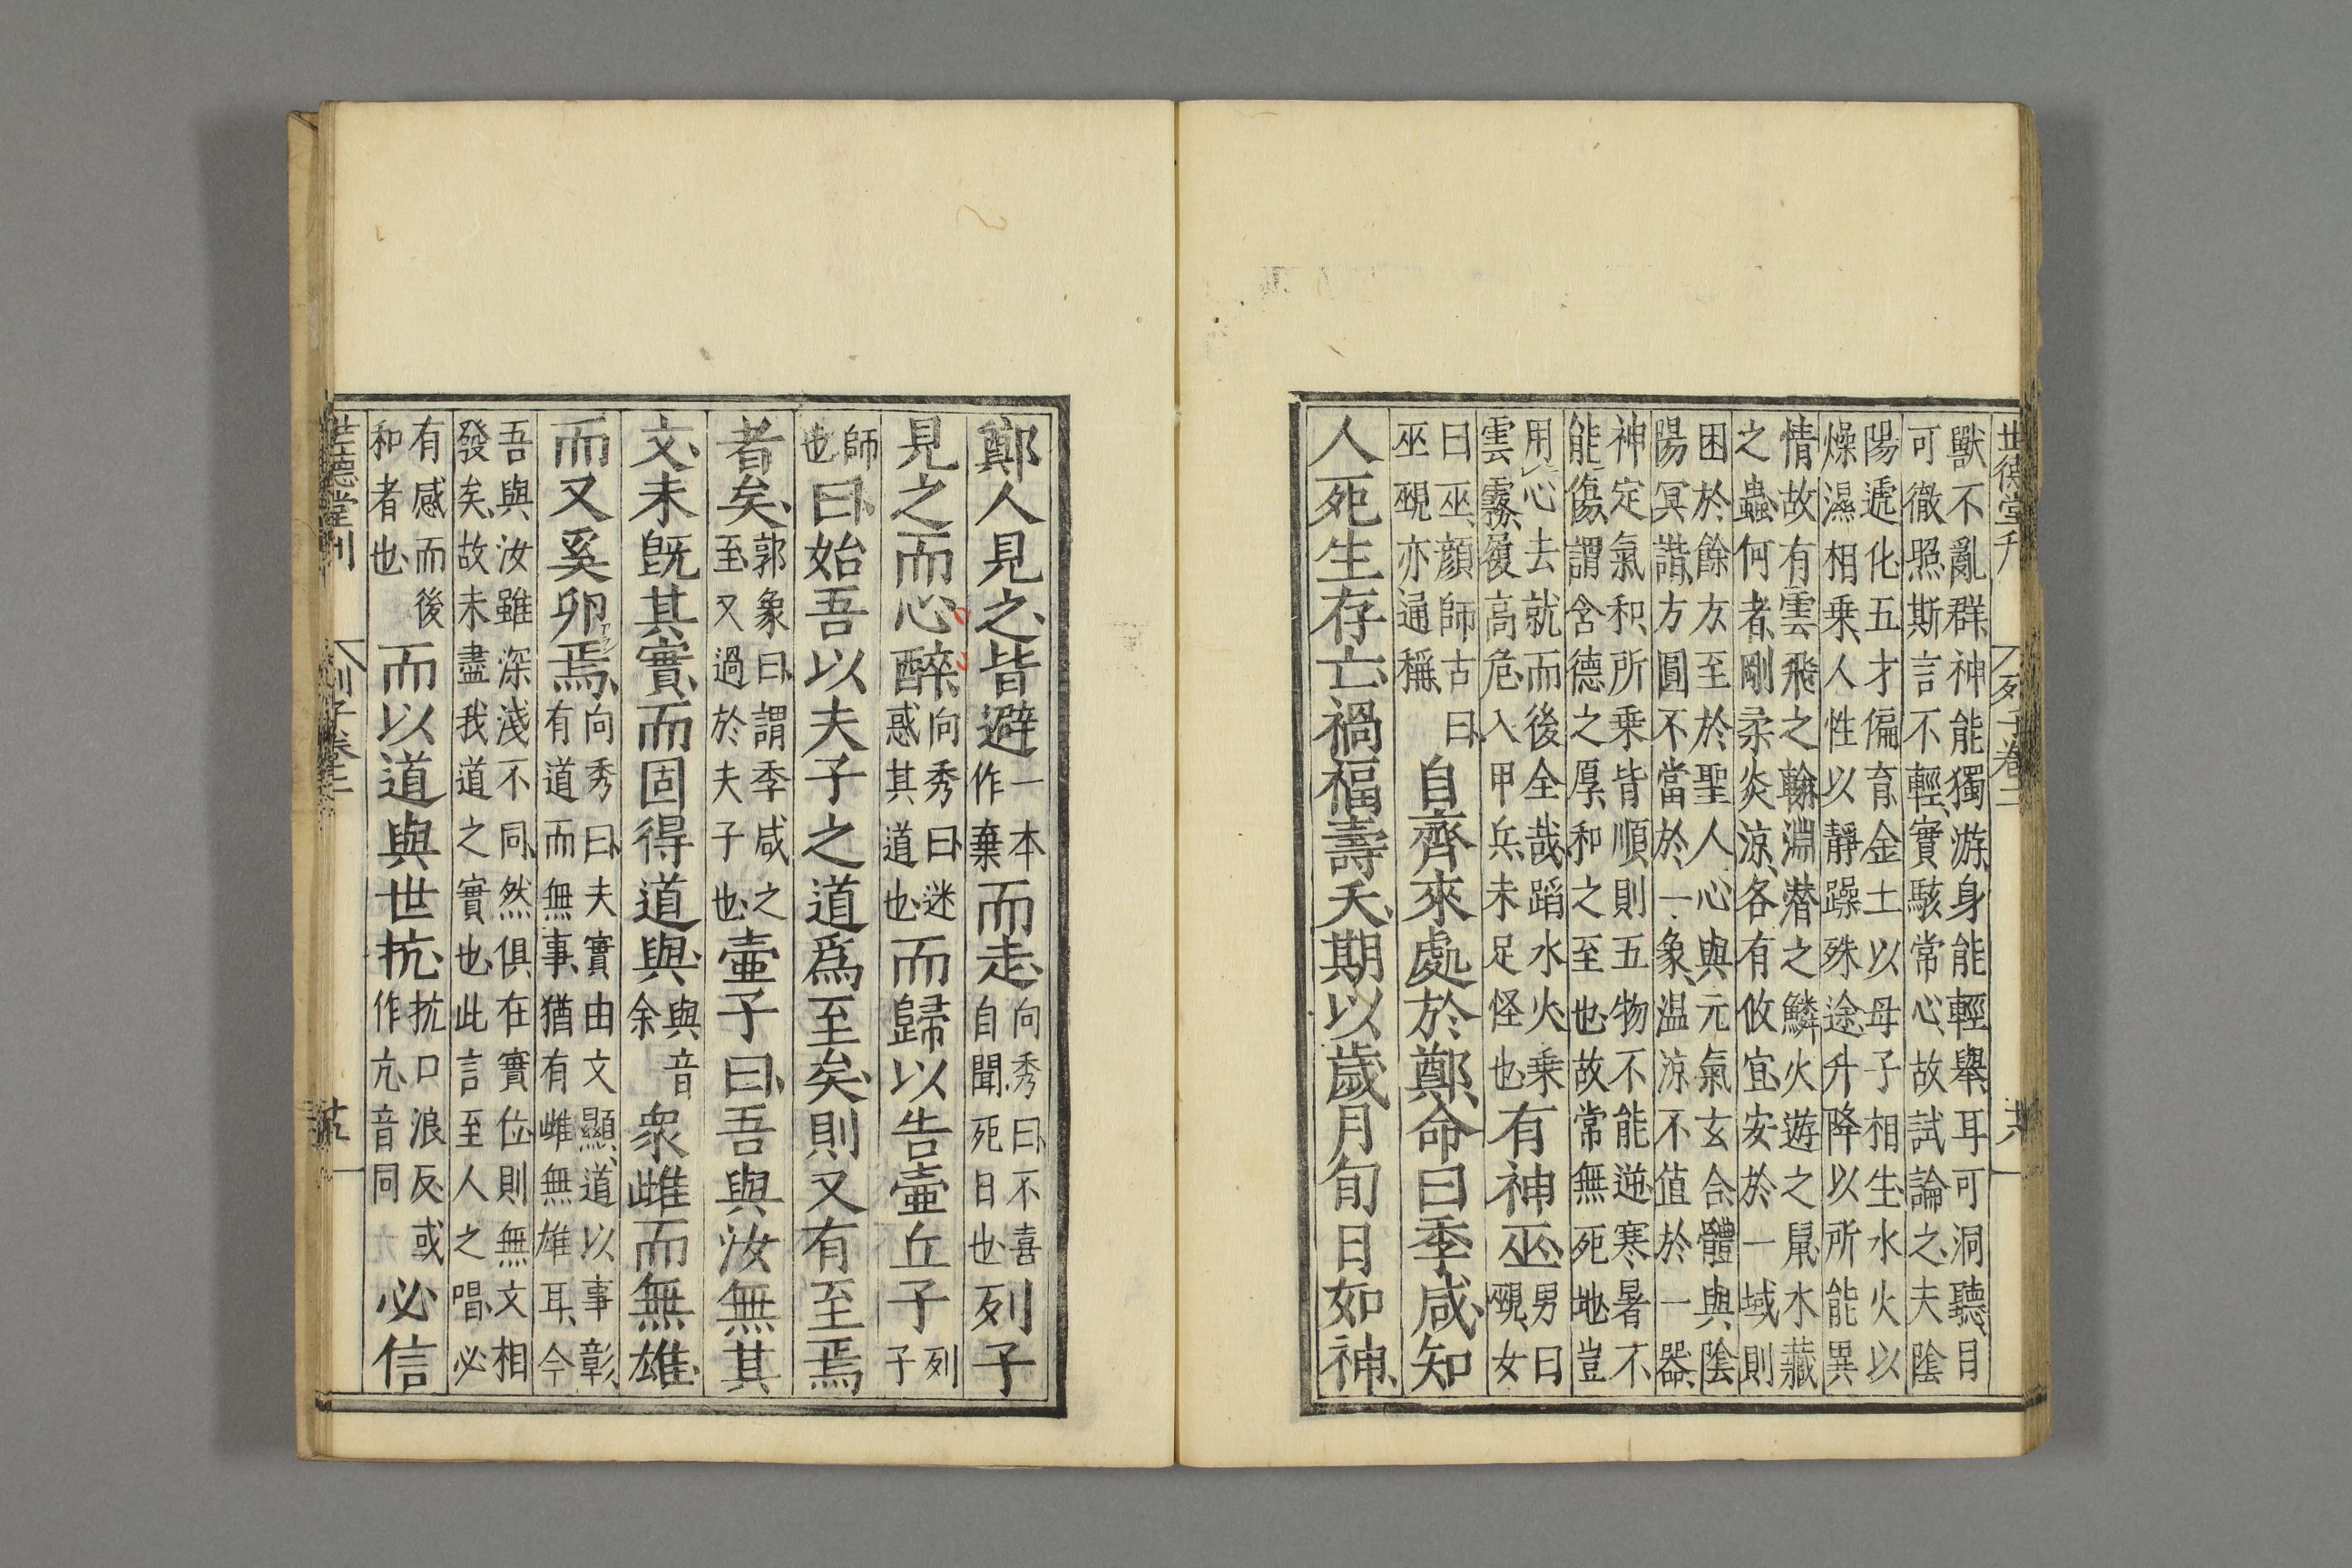 世德堂刊 列子卷二
獸不亂群神能獨游身能輕舉耳可洞聽目
可徹照斯言不輕實駭常心故試論之夫陰
陽遞化五才偏育金土以母子相生水火以
燥濕相乗人性以靜躁殊途升降以所能異
情故有雲飛之翰淵潜之鱗火遊之鼠水藏
之蟲何者剛柔炎涼各有攸宜安於一域則
困於餘方至於聖人心與元氣玄合體與陰
陽冥諧方圓不當於一象温涼不值於一器
神定氣和所乗皆順則五物不能逆寒暑不
能傷謂含德之厚和之至也故常無死地豈
用心去就而後全哉蹈水火乗
雲霧履高危入甲兵未足怪也
有神巫
男曰
覡女
曰巫顔師古曰
巫覡亦通稱
自齊來處於鄭命曰季咸知
人死生存亡禍福壽夭期以歲月旬日如神
鄭人見之皆避
一本
作棄
而走
向秀曰不喜
自聞死日也
列子
見之而心醉
向秀曰迷
惑其道也
而歸以告壷丘子
列
子
師
也
曰始吾以夫子之道爲至矣則又有至焉
者矣
郭象曰謂季咸之
至又過於夫子也
壷子曰吾與汝無其
文未旣其實而固得道與
與音
余
衆雌而無雄
而又奚卵焉
向秀曰夫實由文顯道以事彰
有道而無事猶有雌無雄耳今
吾與汝雖深淺不同然俱在實位則無文相
發矣故未盡我道之實也此言至人之唱必
有感而後
和者也
而以道與世抗
抗口浪反或
作亢音同
必信
世德堂刊 列子卷二